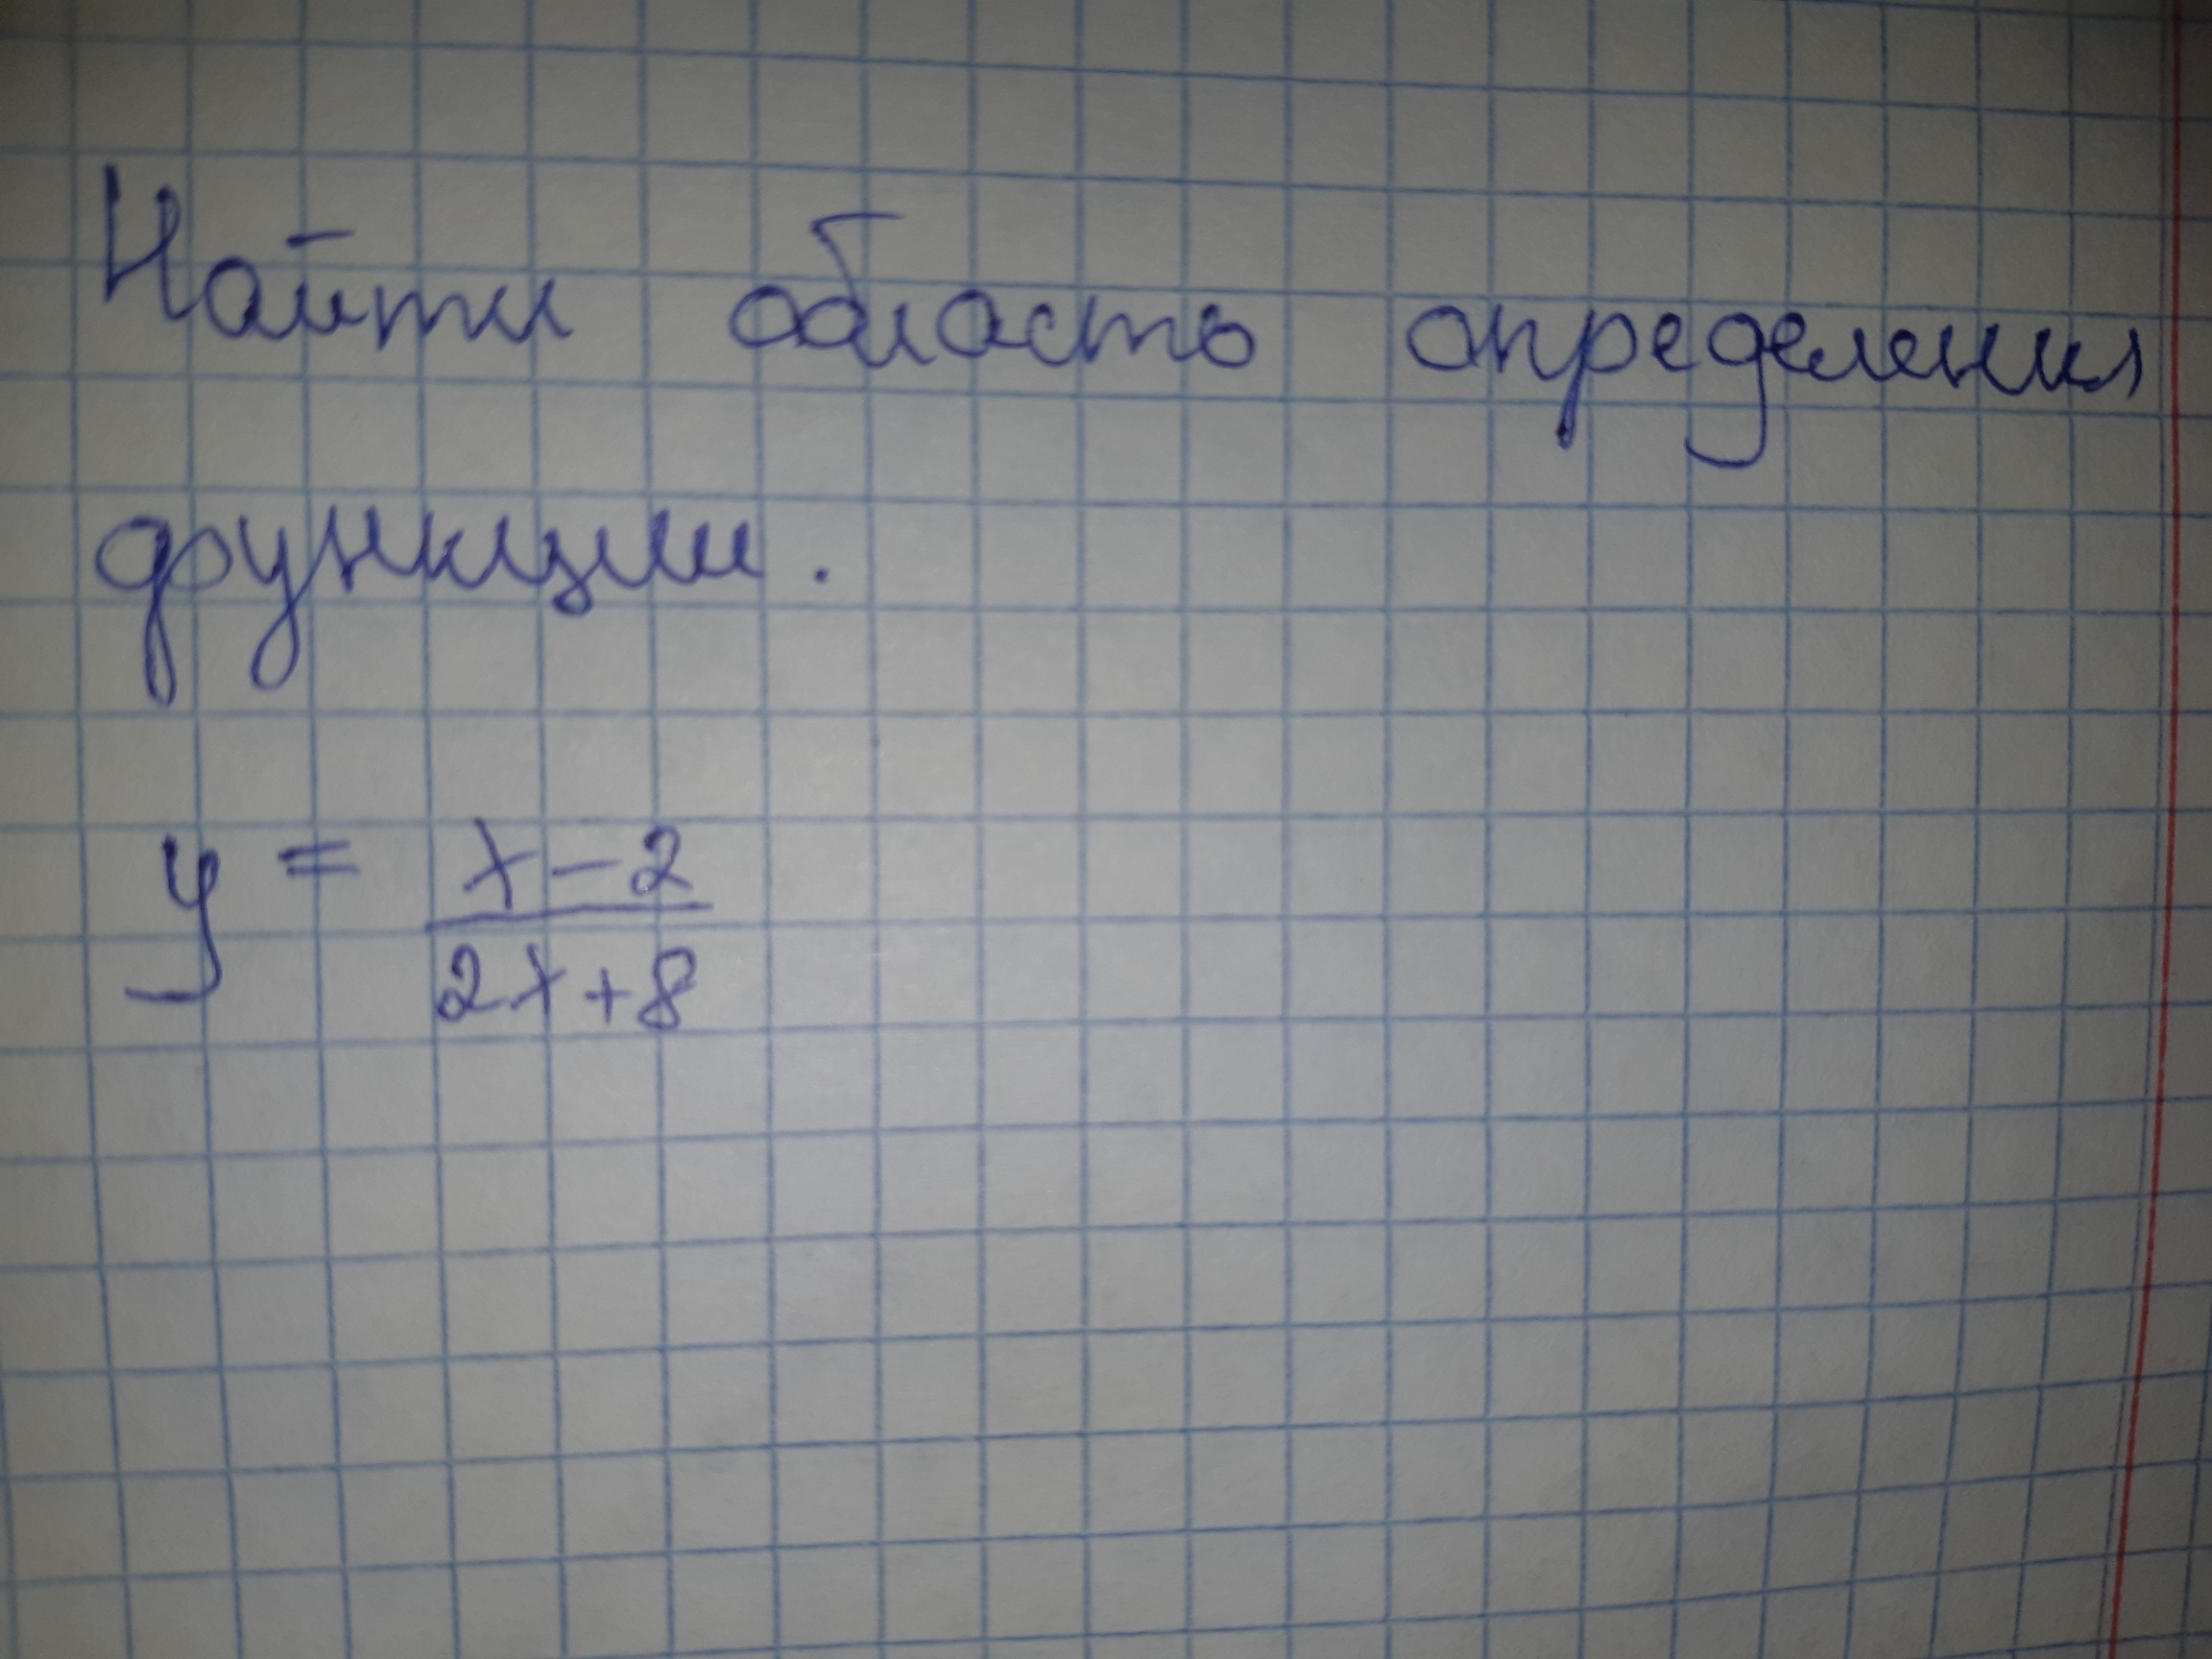 Найти область определения
функции.
y = \frac{x-2}{2x+8}